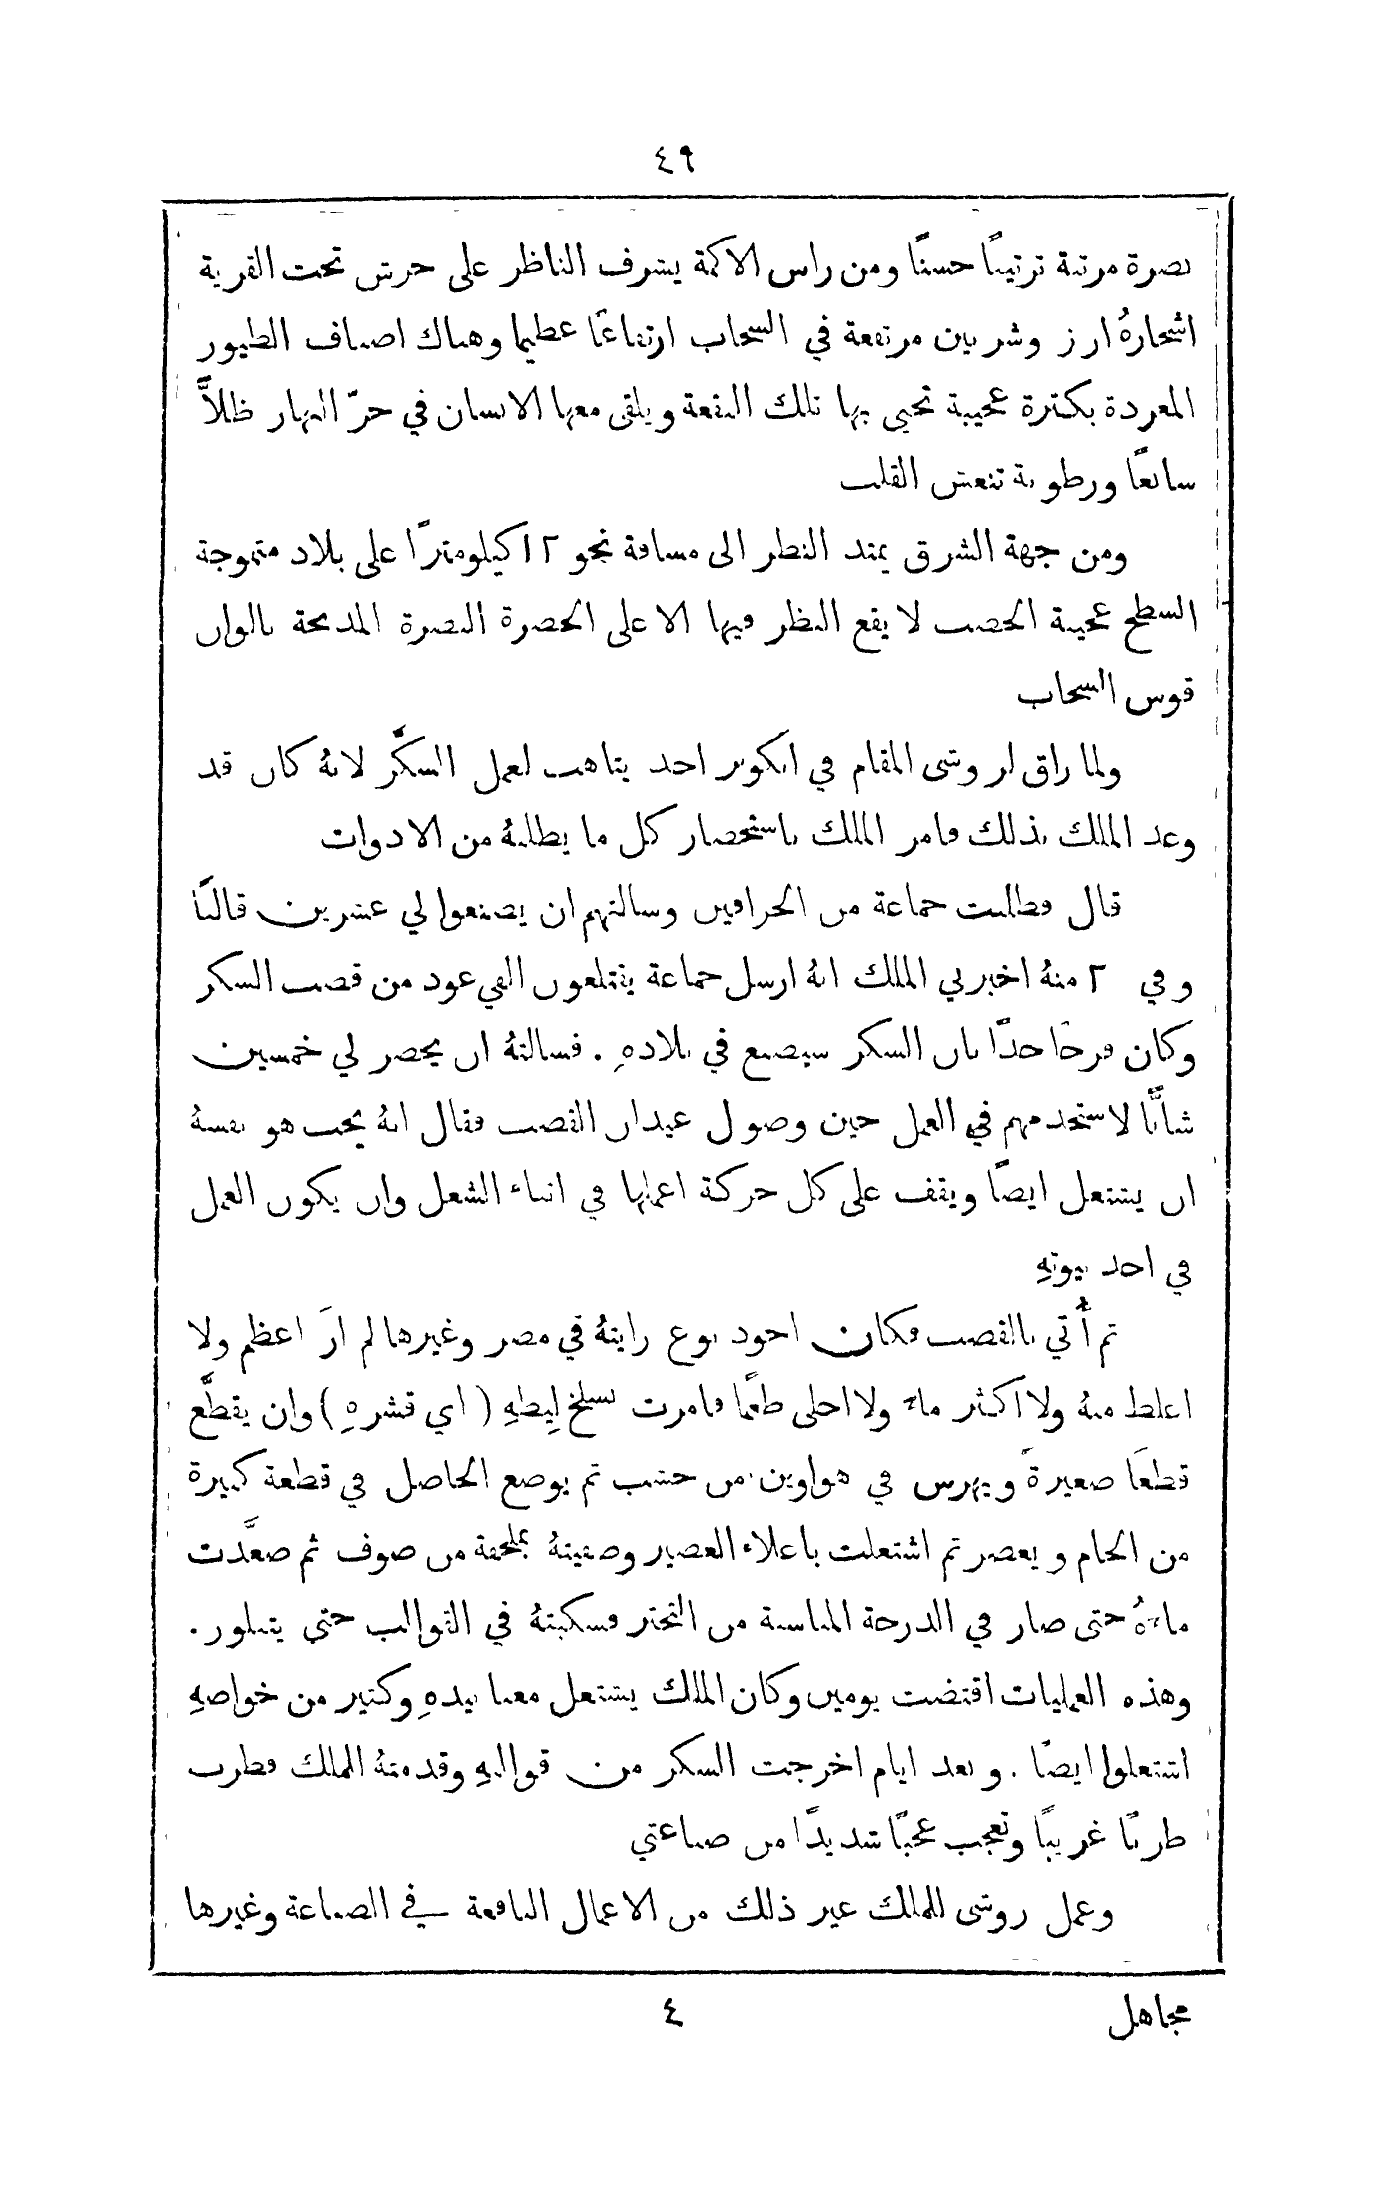 ٤٩
نضرة مرتبة ترتيبًا حسنًا ومن راس الاكمة يشرف الناظر على حرش تحت القرية
اشجارهُ ارز وشربين مرتفعة في السحاب ارتفاعًا عظيما وهناك اصناف الطيور
المغردة بكثرة عجيبة تحيى بها تلك البقعة ويلقى معها الانسان في حرّ النهار ظلاًّ
سابغًا ورطوبة تنعش القلب
ومن جهة الشرق يمتد النظر الى مسافة نحو ١٢ كيلومترًا على بلاد متموجة
السطح عجيبة الخصب لا يقع النظر فيها الا على الخضرة النضرة المدبجة بالوان
قوس السحاب
ولما راق لروشى المقام في انكوبر احذ يتاهب لعمل السكَّر لانهُ كان قد
وعد الملك بذلك فامر الملك باستحضار كل ما يطلبهُ من الادوات
قال فطلبت جماعة من الخزافين وسالتهم ان يصنعوا لي عشرين قالبًا
وفي ٢ منهُ اخبرني الملك انهُ ارسل جماعة يقتلعون الفي عود من قصب السكر
وكان فرحًا جدًّا بان السكر سيصنع في بلادهِ . فسالتهُ ان يحضر لي خمسين
شابًّا لاستخدمهم في العمل حين وصول عيدان القصب فقال انهُ يحب هو نفسهُ
ان يشتغل ايضًا ويقف على كل حركة اعملها في اثناء الشغل وان يكون العمل
في احد بيوتهِ
ثم أُتي بالقصب فكان اجود نوع رايتهُ في مصر وغيرها لم ارَ اعظم ولا
اغلظ منهُ ولا اكثر ماءً ولا احلى طعمًا فامرت بسلخ لِيطهِ (اي قشرهِ) وان يقطَّع
قطعًا صغيرةً ويهرس في هواوين من خشب ثم يوضع الحاصل في قطعة كبيرة
من الخام ويعصر ثم اشتغلت باغلاء العصير وصفيتهُ بملحفة من صوف ثم صعَّدت
ماءهُ حتى صار في الدرجة المناسبة من التخثر فسكبتهُ في القوالب حتى يتبلور .
وهذه العمليات اقتضت يومين وكان الملك يشتغل معنا بيدهِ وكثير من خواصهِ
اشتغلوا ايضًا . وبعد ايام اخرجت السكر من قوالبهِ وقدمتهُ الملك فطرب
طربًا غريبًا وتعجب عجبًا شديدًا من صناعتي
وعمل روشى للملك غير ذلك من الاعمال النافعة في الصناعة وغيرها
مجاهل
٤